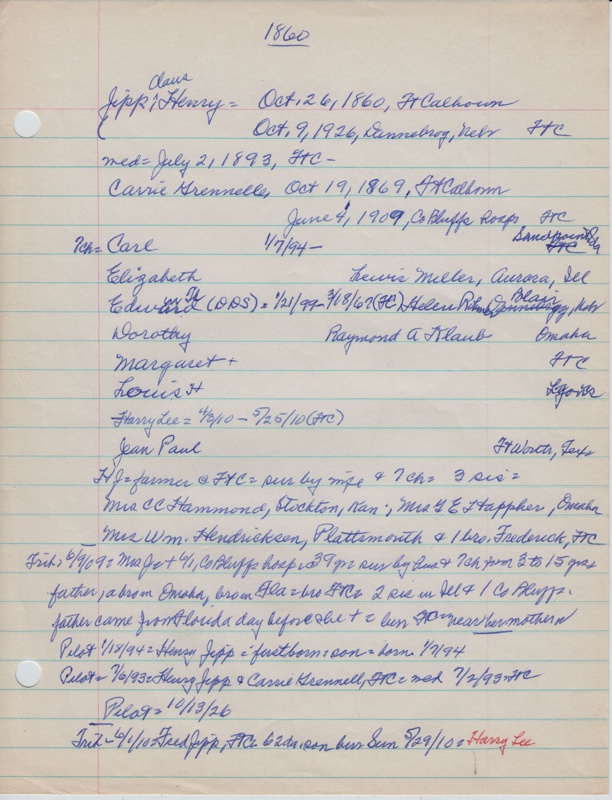 1860
Claus
Jipp, Henry = Oct. 26, 1860, Ft Calhoun
Oct. 9, 1926, Dannebrog, Nebr FtC
med = July 2, 1893, FtC -
Carrie Grennelle, Oct 19, 1869, Ft Calhoun
June 4, 1909, Co Bluffs Hosp FtC
7ch = Carl 1/7/94 - Sandpoint, Ida
Elizabeth Lewis Miller, Aurora, Ill
Edward (DDS) = 1/21/99 - 3/18/67 (FtC) Helen Blair, Nebr
Dorothy Raymond A Klaub Omaha
Margaret + FtC
Louis H
Harry Lee = 4/3/10 - 5/25/10 (FtC)
Jean Paul Ft Worth, Tex
HJ = farmer @ FtC = sur by & 7ch = 3 sis =
Mrs CC Hammond, Stockton, Kan:, Mrs G E Happher, Omaha
Mrs Wm. Hendricksen, Plattsmouth & 1 bro. Frederick, FtC
Trib: 6/9/09 = Mrs J + 6/1, Co Bluffs hosp = 39 yrs sur by hus & 7ch from 3 to 15 yrs
father, a bro in Omaha, bro in Fla = bro FtC = 2 sis in Ill & 1 Co Bluffs.
father came from Florida day before she + = bur FtC = near her mother
Pilot 1/18/94 = Henry Jipp = firstborn = son = born 1/7/94
Pilot = 7/6/93 = Henry Jipp & Carrie Grennell, FtC = med 7/2/93 = FtC
Pilot = 10/13/26
Trib = 6/1/10 = Fred Jipp, FtC 62da. son bur Sun 5/29/10 = Harry Lee